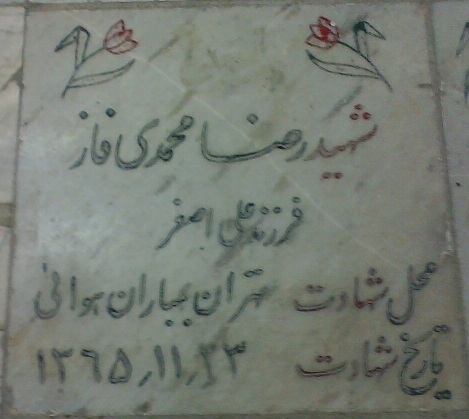 شهید رضا محمدی فاز
فرزند علی اصغر
محل شهادت تهران بمباران هوائی
تاریخ شهادت ۱۳۶۵٫۱۱٫۲۳